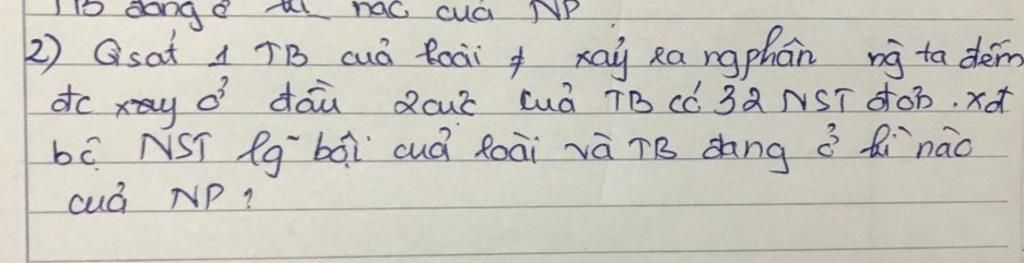 TB đang ở kì nào của NP
2) Qsát 1 TB cuả loài ≠ xảy ra ngphân ng ta đếm
đc xray ở đầu 2cực cuả TB có 32 NST đơn. xđ
bộ NST lg~ bội cuả loài và TB đang ở kì nào
cuả NP?